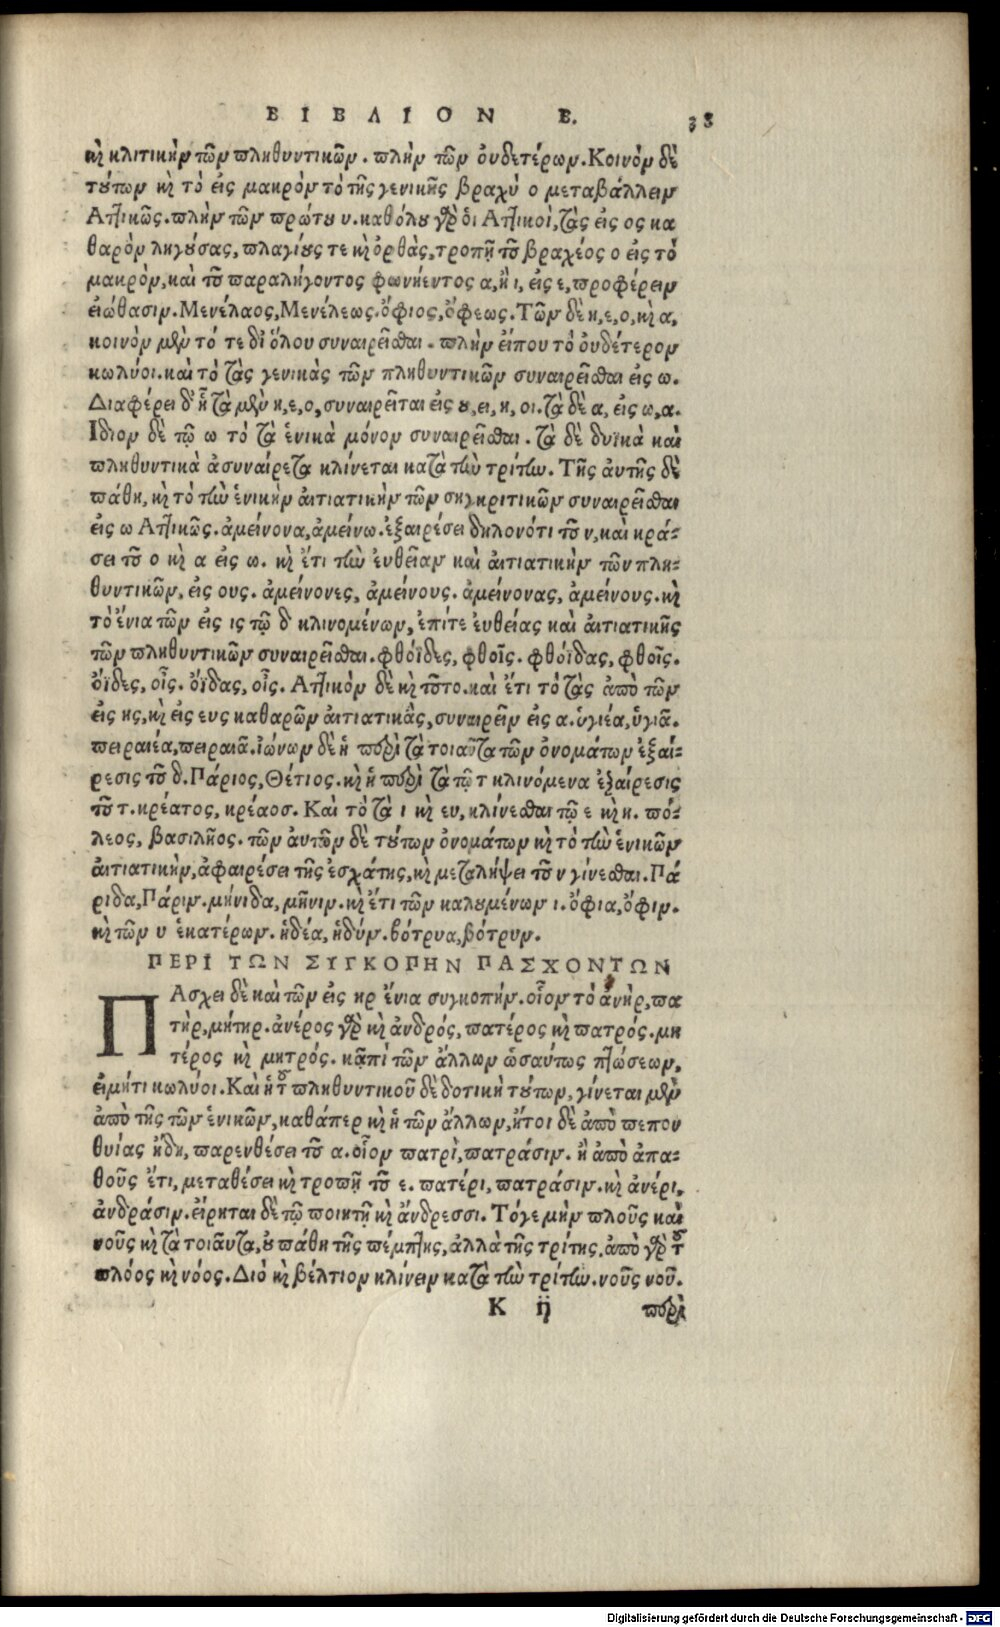 ΒΙΒΛΙΟΝ Β. 38
καὶ κλιτικὴν τῶν πληθυντικῶν. πλὴν τῶν οὐδετέρων. Κοινὸν δὲ
τούτων καὶ τὸ εἰς μακρὸν τὸ τῆς γενικῆς βραχὺ ο μεταβάλλειν
Ἀττικῶς. πλὴν τῶν πρώτου υ. καθόλου γὰρ ὁι Ἀττικοὶ, τὰς εἰς ος κα
θαρὸν ληγούσας, πλαγίους τε καὶ ὀρθὰς, τροπῇ τοῦ βραχέος ο εἰς τὸ
μακρὸν, καὶ τοῦ παραλήγοντος φωνήεντος α, ἢ ι, εἰς ε, προφέρειν
εἰώθασιν. Μενέλαος, Μενέλεως. ὄφιος, ὄφεως. Τῶν δὲ η, ε, ο, καὶ α,
κοινὸν μὲν τό τε δι ὅλου συναιρεῖσθαι. πλὴν εἴπου τὸ οὐδέτερον
κωλύοι. καὶ τὸ τὰς γενικὰς τῶν πληθυντικῶν συναιρεῖσθαι εἰς ω.
Διαφέρει δ' ᾗ τὰ μὲν η, ε, ο, συναιρεῖται εἰς ου, ει, η, οι. τὰ δὲ α, εἰς ω, α.
Ιδιον δὲ τῷ ω τὸ τὰ ἑνικὰ μόνον συναιρεῖσθαι. τὰ δὲ δυϊκὰ καὶ
πληθυντικὰ ἀσυναίρετα κλίνεται κατὰ τὴν τρίτην. Τῆς ἀυτῆς δὲ
πάθη, καὶ τὸ τὴν ἑνικὴν ἀιτιατικὴν τῶν συγκριτικῶν συναιρεῖσθαι
εἰς ω Ἀττικῶς. ἀμείνονα, ἀμείνω. ἐξαιρέσει δηλονότι τοῦ ν, καὶ κρά-
σει τοῦ ο καὶ α εἰς ω. καὶ ἔτι τὴν ἐυθεῖαν καὶ ἀιτιατικὴν τῶν πλη-
θυντικῶν, εἰς ους. ἀμείνονες, ἀμείνους. ἀμείνονας, ἀμείνους. καὶ
τὸ ἔνια τῶν εἰς ις τῷ δ κλινομένων, ἐπίτε ἐυθείας καὶ ἀιτιατικῆς
τῶν πληθυντικῶν συναιρεῖσθαι. φθόϊδες, φθοῖς. φθόϊδας, φθοῖς.
ὄϊδες, οἶς. ὄϊδας, οἶς. Ἀττικὸν δὲ καὶ τοῦτο. καὶ ἔτι τὸ τὰς ἀπὸ τῶν
εἰς ης, καὶ εἰς ευς καθαρῶν ἀιτιατικὰς, συναιρεῖν εἰς α. ὑγιέα, ὑγιᾶ.
πειραιέα, πειραιᾶ. ἰώνων δὲ ἡ περὶ τὰ τοιαῦτα τῶν ὀνομάτων ἐξαί-
ρεσις τοῦ δ. Πάριος, Θέτιος. καὶ ἡ περὶ τὰ τῷ τ κλινόμενα ἐξαίρεσις
τοῦ τ. κρέατος, κρέαος. Καὶ τὸ τὰ ι καὶ ευ, κλίνεσθαι τῷ ε καὶ η. πό-
λεος, βασιλῆος. τῶν ἀυτῶν δὲ τούτων ὀνομάτων καὶ τὸ τὴν ἑνικῶν
ἀιτιατικὴν, ἀφαιρέσει τῆς ἐσχάτης, καὶ μεταλήψει τοῦ ν γίνεσθαι. Πά
ριδα, Πάριν. μήνιδα, μῆνιν. καὶ ἔτι τῶν καλουμένων ι. ὄφια, ὄφιν.
καὶ τῶν υ ἑκατέρων. ἡδέα, ἡδύν. βότρυα, βότρυν.
ΠΕΡΙ ΤΩΝ ΣΥΓΚΟΠΗΝ ΠΑΣΧΟΝΤΩΝ
ΠΑσχει δὲ καὶ τῶν εἰς ηρ ἔνια συγκοπήν. οἷον τὸ ἀνὴρ, πα
τὴρ, μήτηρ. ἀνέρος γὰρ καὶ ἀνδρός, πατέρος καὶ πατρός. μη
τέρος καὶ μητρός. κᾀπὶ τῶν ἄλλων ὡσαύτως πτώσεων,
ἐιμήτι κωλύοι. Καὶ ἡ τοῦ πληθυντικοῦ δὲ δοτικὴ τούτων, γίνεται μὲν
ἀπὸ τῆς τῶν ἑνικῶν, καθάπερ καὶ ἡ τῶν ἄλλων, ἤτοι δὲ ἀπὸ πεπον
θυίας ἤδη, παρενθέσει τοῦ α. οἷον πατρὶ, πατράσιν. ἢ ἀπὸ ἀπα-
θοῦς ἔτι, μεταθέσει καὶ τροπῇ τοῦ ε. πατέρι, πατράσιν. καὶ ἀνέρι,
ἀνδράσιν. ἐίρηται δὲ τῷ ποιητῇ καὶ ἄνδρεσσι. Τόγε μὴν πλοῦς καὶ
νοῦς καὶ τὰ τοιᾶυτα, οὐ πάθη τῆς πέμπτης, ἀλλὰ τῆς τρίτης. ἀπὸ γὰρ τοῦ
πλόος καὶ νόος. Διὸ καὶ βέλτιον κλίνειν κατὰ τὴν τρίτην. νοῦς νοῦ.
Κ ij περὶ
Digitalisierung gefördert durch die Deutsche Forschungsgemeinschaft - DFG